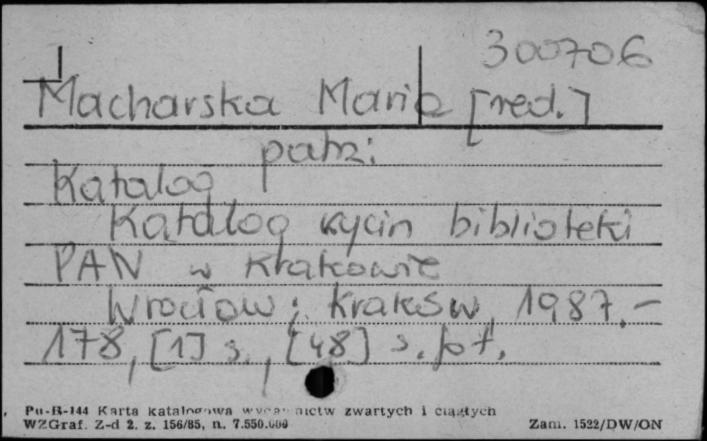 300706
Macharska Maria [red.]
patrz:
Katalog
Katalog rycin biblioteki
PAN w Krakowie
Wrocław; Kraków, 1987.-
178, [1] s., [48] s. fot.
Pu-B-144 Karta katalogowa wydawnictw zwartych i ciągłych
WZGraf. Z-d 2. z. 156/85, n. 7.550.000 Zam. 1522/DW/ON